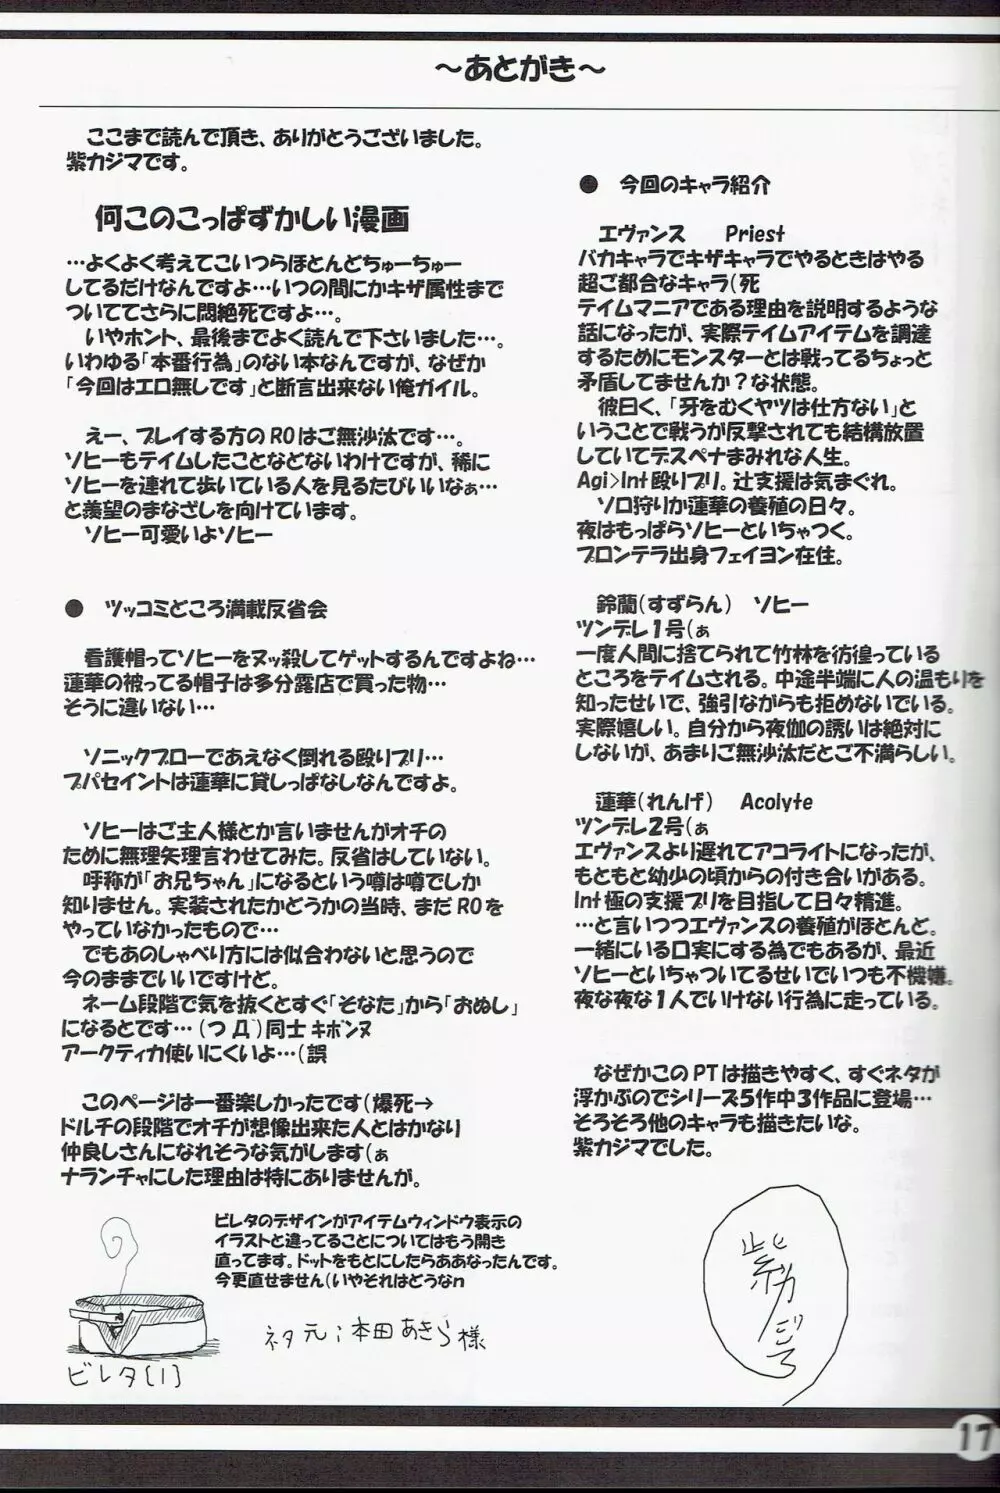 ～あとがき～
ここまで読んで頂き、ありがとうございました。
紫カジマです。
何このこっぱずかしい漫画
…よくよく考えてこいつらほとんどちゅーちゅー
してるだけなんですよ…いつの間にかキザ属性まで
ついててさらに悶絶死ですよ…。
いやホント、最後までよく読んで下さいました…。
いわゆる「本番行為」のない本なんですが、なぜか
「今回はエロ無しです」と断言出来ない俺ガイル。
えー、プレイする方のROはご無沙汰です…。
ソヒーもテイムしたことなどないわけですが、稀に
ソヒーを連れて歩いている人を見るたびいいなぁ…
と羨望のまなざしを向けています。
ソヒー可愛いよソヒー
● ツッコミどころ満載反省会
看護帽ってソヒーをヌッ殺してゲットするんですよね…
蓮華の被ってる帽子は多分露店で買った物…
そうに違いない…
ソニックブローであえなく倒れる殴りプリ…
プパセイントは蓮華に貸しっぱなしなんですよ。
ソヒーはご主人様とか言いませんがオチの
ために無理矢理言わせてみた。反省はしていない。
呼称が「お兄ちゃん」になるという噂は噂でしか
知りません。実装されたかどうかの当時、まだROを
やっていなかったもので…
でもあのしゃべり方には似合わないと思うので
今のままでいいですけど。
ネーム段階で気を抜くとすぐ「そなた」から「おぬし」
になるとです…（つД`）同士キボンヌ
アークティカ使いにくいよ…（誤
このページは一番楽しかったです（爆死→
ドルチの段階でオチが想像出来た人とはかなり
仲良しさんになれそうな気がします（ぁ
ナランチャにした理由は特にありませんが。
ビレタのデザインがアイテムウィンドウ表示の
イラストと違ってることについてはもう開き
直ってます。ドットをもとにしたらああなったんです。
今更直せません（いやそれはどうなn
ネタ元；本田あきら様
ビレタ[1]
● 今回のキャラ紹介
エヴァンス Priest
バカキャラでキザキャラでやるときはやる
超ご都合なキャラ（死
テイムマニアである理由を説明するような
話になったが、実際テイムアイテムを調達
するためにモンスターとは戦ってるちょっと
矛盾してませんか？な状態。
彼曰く、「牙をむくヤツは仕方ない」と
いうことで戦うが反撃されても結構放置
していてデスペナまみれな人生。
Agi>Int殴りプリ。辻支援は気まぐれ。
ソロ狩りか蓮華の養殖の日々。
夜はもっぱらソヒーといちゃつく。
プロンテラ出身フェイヨン在住。
鈴蘭（すずらん） ソヒー
ツンデレ1号（ぁ
一度人間に捨てられて竹林を彷徨っている
ところをテイムされる。中途半端に人の温もりを
知ったせいで、強引ながらも拒めないでいる。
実際嬉しい。自分から夜伽の誘いは絶対に
しないが、あまりご無沙汰だとご不満らしい。
蓮華（れんげ） Acolyte
ツンデレ2号（ぁ
エヴァンスより遅れてアコライトになったが、
もともと幼少の頃からの付き合いがある。
Int極の支援プリを目指して日々精進。
…と言いつつエヴァンスの養殖がほとんど。
一緒にいる口実にする為でもあるが、最近
ソヒーといちゃついてるせいでいつも不機嫌。
夜な夜な1人でいけない行為に走っている。
なぜかこのPTは描きやすく、すぐネタが
浮かぶのでシリーズ5作中3作品に登場…
そろそろ他のキャラも描きたいな。
紫カジマでした。
17